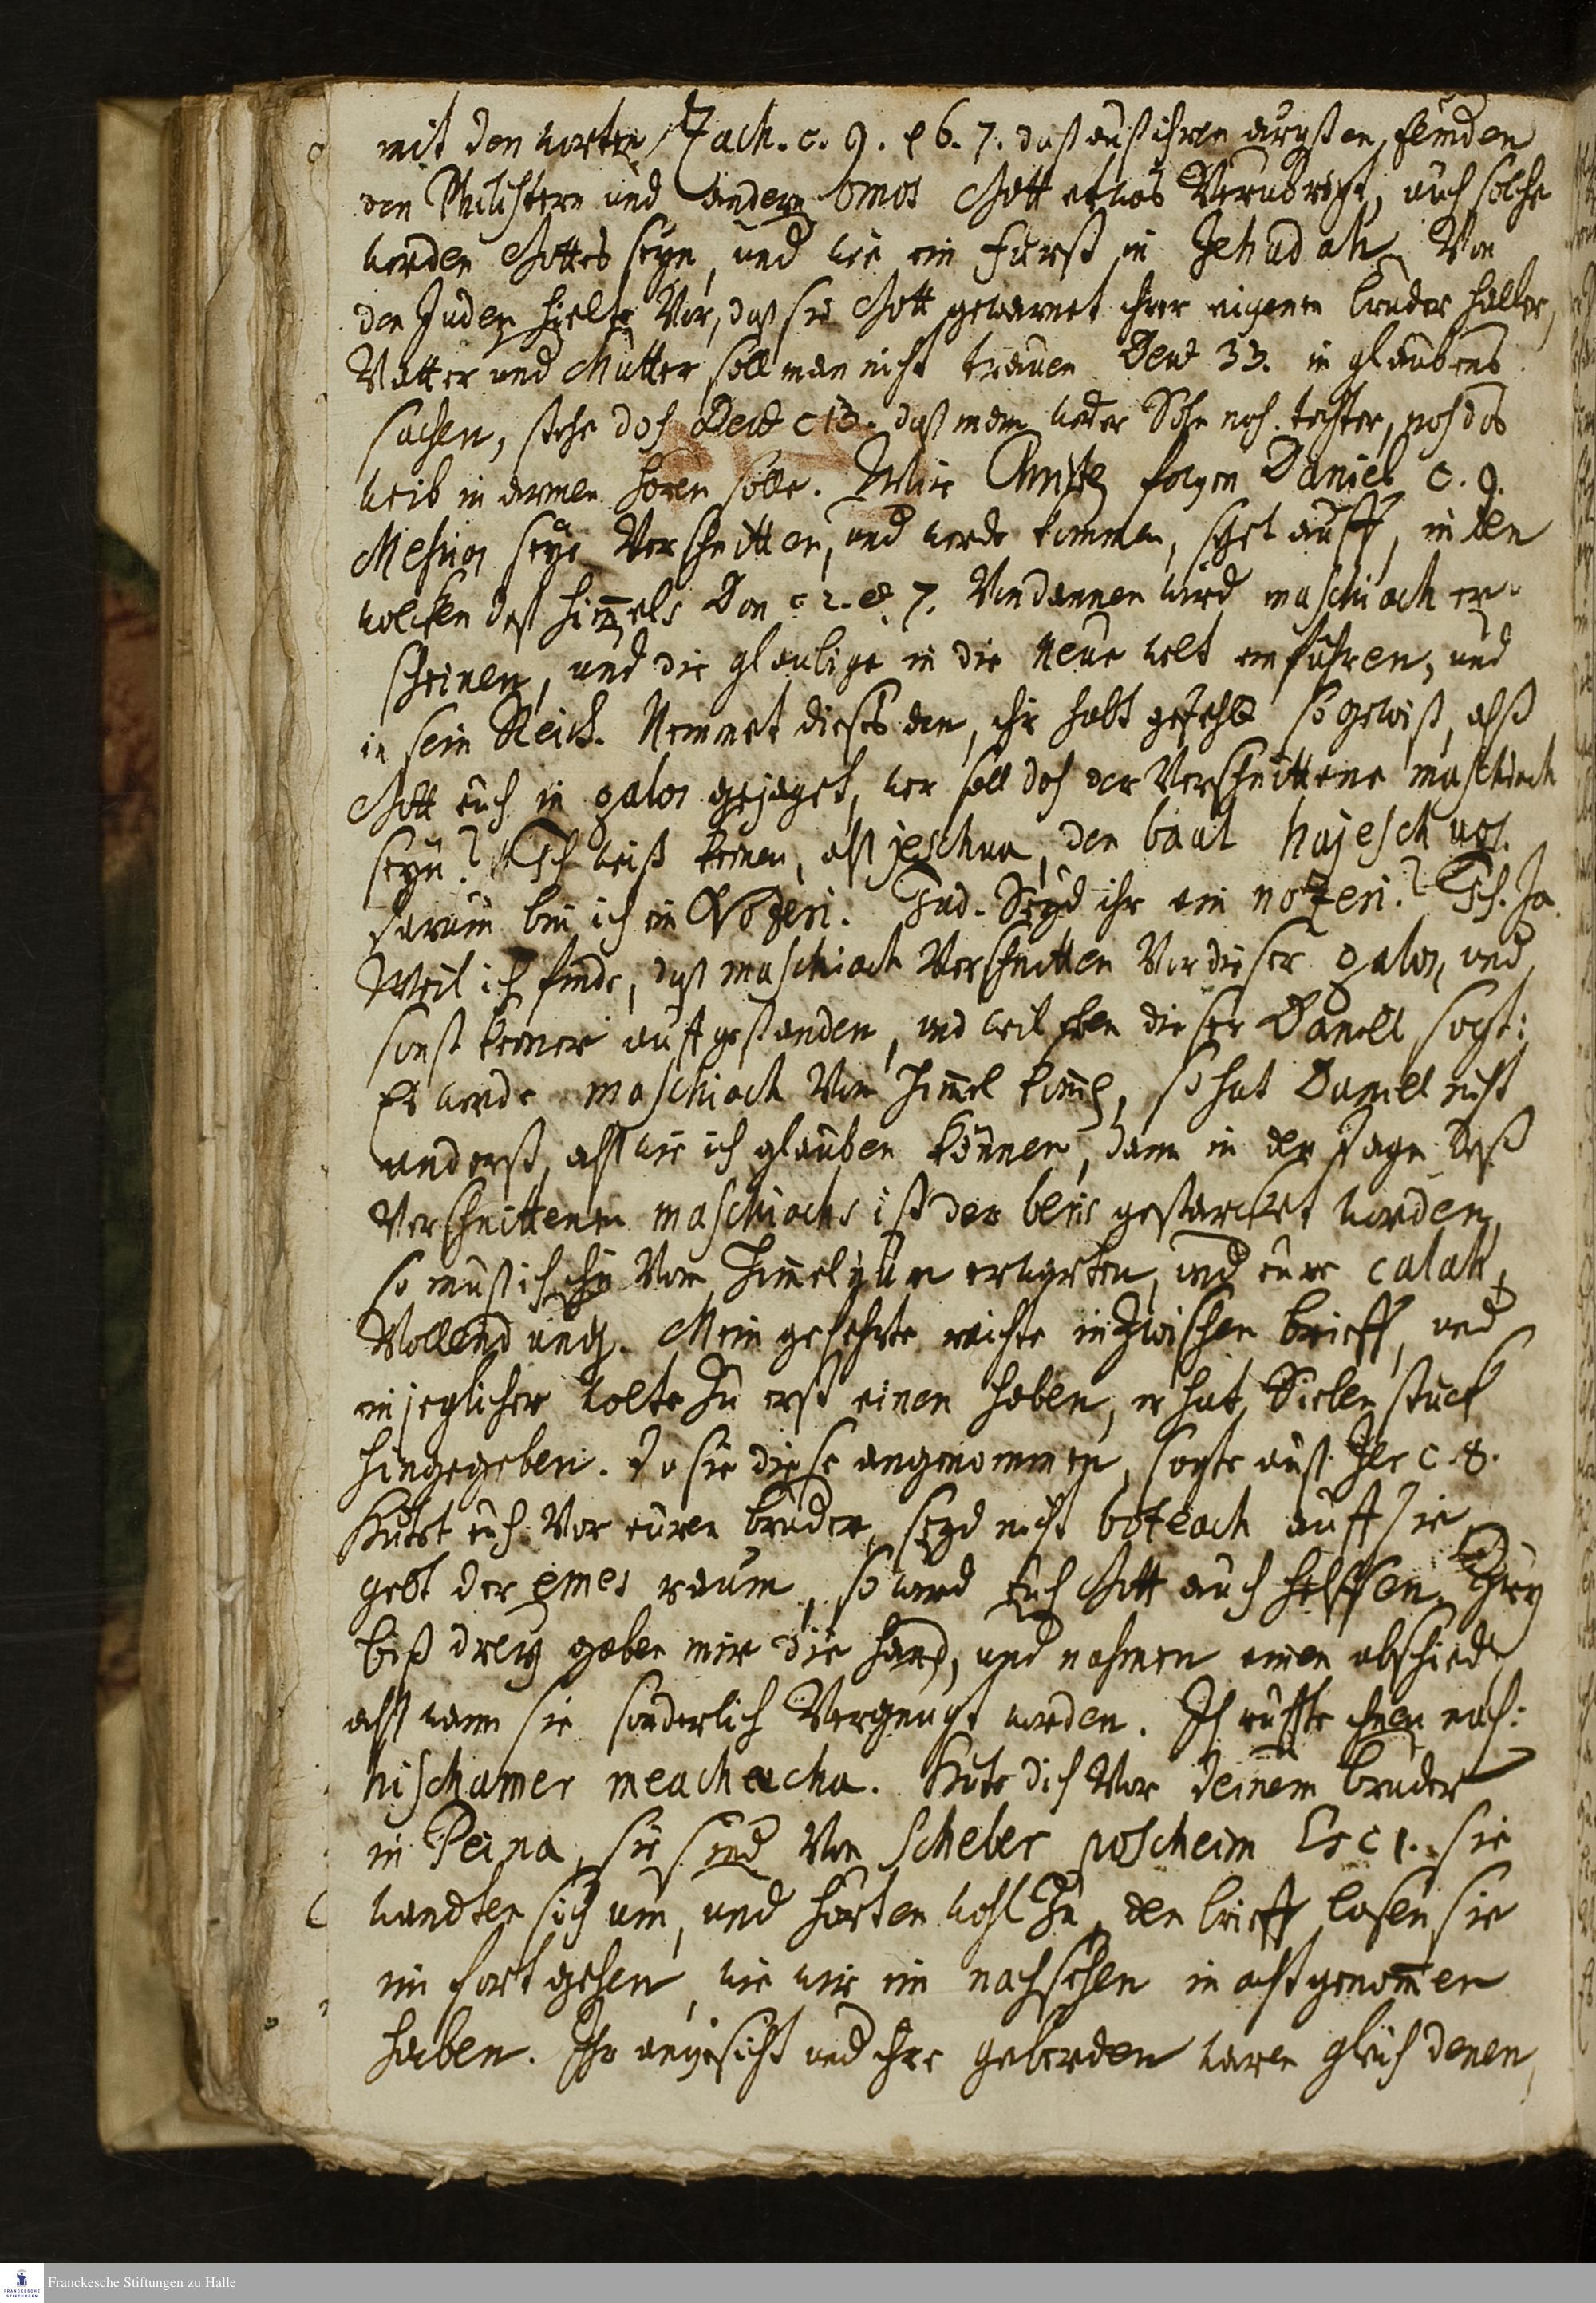 mit den worten Zach. c. 9. v 6. 7. daß auß ihren ärgsten feinden
den Philistern und andern omos Gott etwas Verubrigt, auch solche
werden Gottes seyn, und wie ein Fürst in Jehudah. Von
den Juden hielte Vor, daß sie Gott gewarnet ihrer eigenen bruder halber,
Vatter und Mutter soll man nicht trauen Deut 33. in glaubens
sachen, stehe doch Deut c 13. daß man weder Sohn noch tochter, noch das
weib in armen hören solle. Wir Christen folgen Daniel c. 9.
Messias seye Verschnitten, und werde kommen, sehet auff, in den
wolcken deß himmels Dan c 2. & 7. Von dannen wird maschiach er-
scheinen, und die glaubige in die Neue welt einführen, und
in sein Reich. Nemmet dieses an, ihr habt gefehlt so gewiß, alß
Gott euch in galos gejaget, wer soll doch der Verschnittene maschiach
seyn? Ich weiß keinen, alß jeschua, den baal hajeschuos.
darum bin ich ein Nozeri. Jud. Seyd ihr ein nozeri? Ich. Ja.
Weil ich finde, daß maschiach Verschnitten Vor dieser galos, und
sonst keiner auffgestanden, und weil eben dieser Daniel sagt:
Es werde maschiach Vom Himmel kommen, so hat Daniel nicht
anderst, alß wie ich glauben können, dann in den tagen deß
Verschnittenen maschiachs ist der beris gestarcket worden,
so muß ich ihn Vom Himmel zur erwarten, und eure calah,
Vollendung. Mein gefehrte reichte inzwischen brieff, und
ein jeglicher wolte zu erst einen haben, er hat Sieben stuck
hingegeben. Da sie diese angenommen, sagte auß Jer c 8.
Hütet euch Vor euren bruder, seyd nicht boteach auff sie
gebt der emes raum, so wird euch Gott auch helffen. Zwey
biß drey gaben mir die hand, und nahmen einen abschied
alß wann sie sonderlich Vergnugt worden. Ich ruffte ihnen nach:
hischamer meachecha. Hüte dich Vor deinem bruder
in Peina, sie sind Von Scheber poscheim Es c 1. sie
wandten sich um, und hörten wohl zu, den brieff lasen sie
im fortgehen, wie wir im nachsehen in acht genommen
haben. Ihr angesicht und ihre geberden waren gleich denen,
Franckesche Stiftungen zu Halle